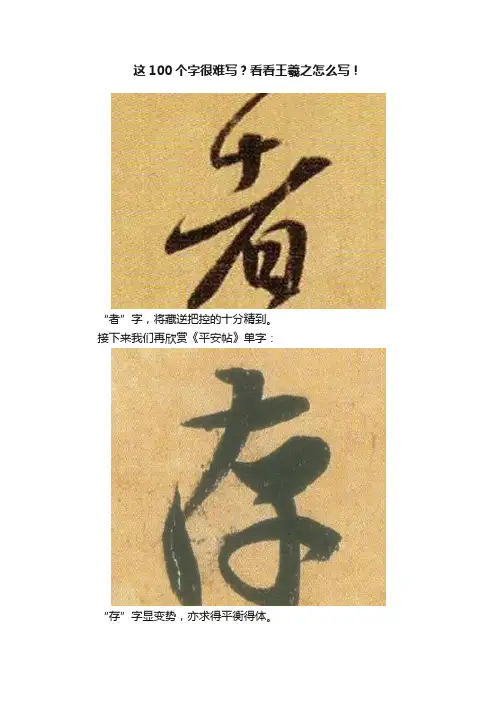 这100个字很难写？看看王羲之怎么写！
者
“者”字，将藏逆把控的十分精到。
接下来我们再欣赏《平安帖》单字：
存
“存”字显变势，亦求得平衡得体。